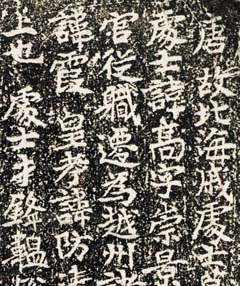 唐故北海戚處士
處士諱高字崇景
官從職遷為越州諸
諱霞 皇考諱防
上也 處士才韞